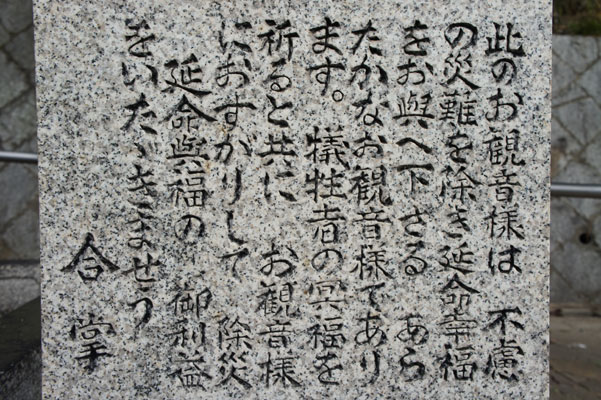 此のお観音様は　不慮
の災難を除き延命幸福
をお與へ下さる　あら
たかなお観音様であり
ます。　犠牲者の冥福を
祈ると共に　お観音様
におすがりして　除災
延命與福の　御利益
をいたゞきませう
合掌